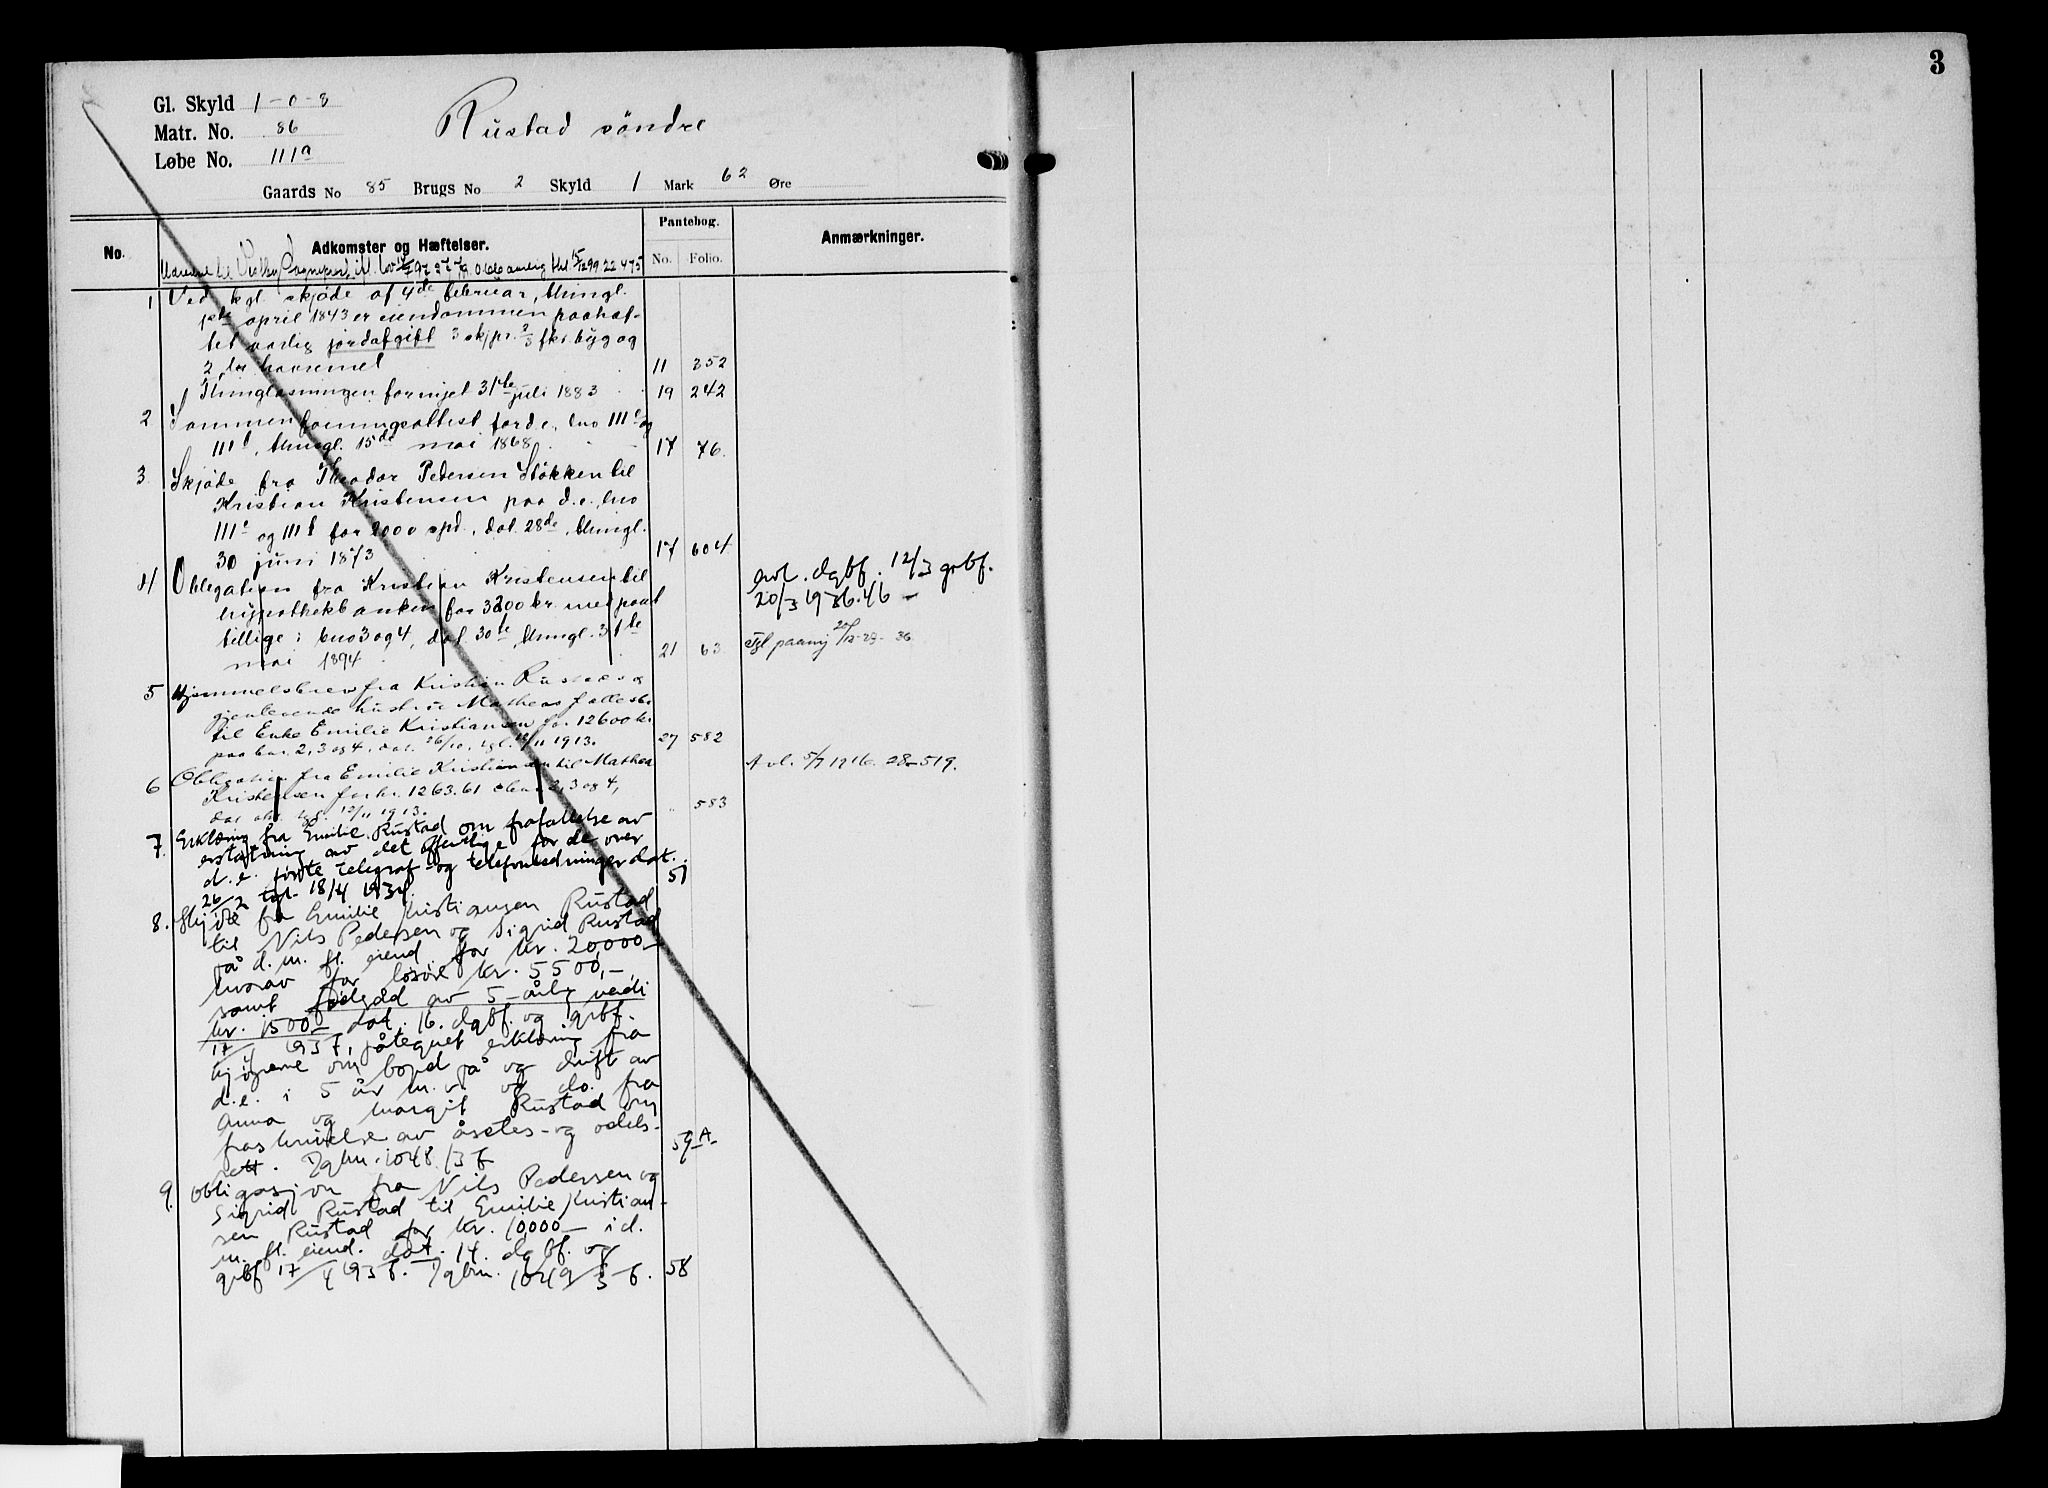 3
Gl. Skyld 1-0-8
Matr. No. 86
Løbe No. 111a
Rustad söndre
Gaards No 85 Brugs No 2 Skyld 1 Mark 62 Øre
No. Adkomster og Hæftelser. Pantebog. No. Folio. Anmærkninger.
1 Ved kgl. skjøde af 4de februar, thingl.
april 1843 er eiendommen paahæf-
tet aarlig jordafgift 3 skjpr. 2/3 fkr. byg og
2 havremel 11 352
Thinglæsningen fornyet 31te juli 1883 19 242
2 Sammenføiningsattest for d.e., lno 111c og
111d, thingl. 15de mai 1868. 17 76.
3 Skjøde fra Theodor Pedersen Støkken til
Kristian Kristensen paa d.e., lno
111c og 111d for 2000 spd., dat. 28de, thingl.
30 juni 1873 17 604
4 Obligation fra Kristian Kristensen til
hypothekbanken for 3200 kr. med pant
tillige i bno 3 og 4, dat. 30te, thingl. 31te
mai 1894. 21 63
avl. dgbf. 12/3 grbf.
20/3 1936. 46 –
Tgl paany 20/12-23- 36
5 Hjemmelsbrev fra Kristian Rustads og
gjenlevende hustru Matheas fællesbo
til Enke Emilie Kristiansen for 12600 kr
paa bno. 2, 3 og 4, dat. 26/10, tgl. 12/11 1913. 27 582
6 Obligation fra Emilie Kristiansen til Mathea
Kristensen for kr. 1263.61 i bno 2, 3 og 4,
dat. tgl. 12/11 1913. " 583
Avl. 5/7 1916. 28-519.
7. Erklæring fra Emilie Rustad om frafallelse av
erstatning av det offentlige for de over
d.e. førte telegraf- og telefonledninger dat.
26/2 tgl. 18/4 1934. 51
8. Skjøte fra Emilie Kristiansen Rustad
til Nils Pedersen og Sigrid Rustad
på d. m. fl. eiend. for kr. 20,000–
hvorav for løsøre kr. 5500,–
samt føderåd av 5-årlig verdi
kr. 1500– dat. 16. dgbf. og grbf.
17/4 1937, påtegnet erklæring fra
kjøperne om bopel på og drift av
d.e. i 5 år m.v. og do. fra
Anna og Margit Rustad om
fraskrivelse av åsetes- og odels-
rett. Dgbnr. 1048/37 59 A-
9. Obligasjon fra Nils Pedersen og
Sigrid Rustad til Emilie Kristian-
sen Rustad for kr. 10,000– i d.
m. fl. eiend. dat. 14. dgbf. og
grbf 17/4 1937. Dgbnr. 1049/37. 58